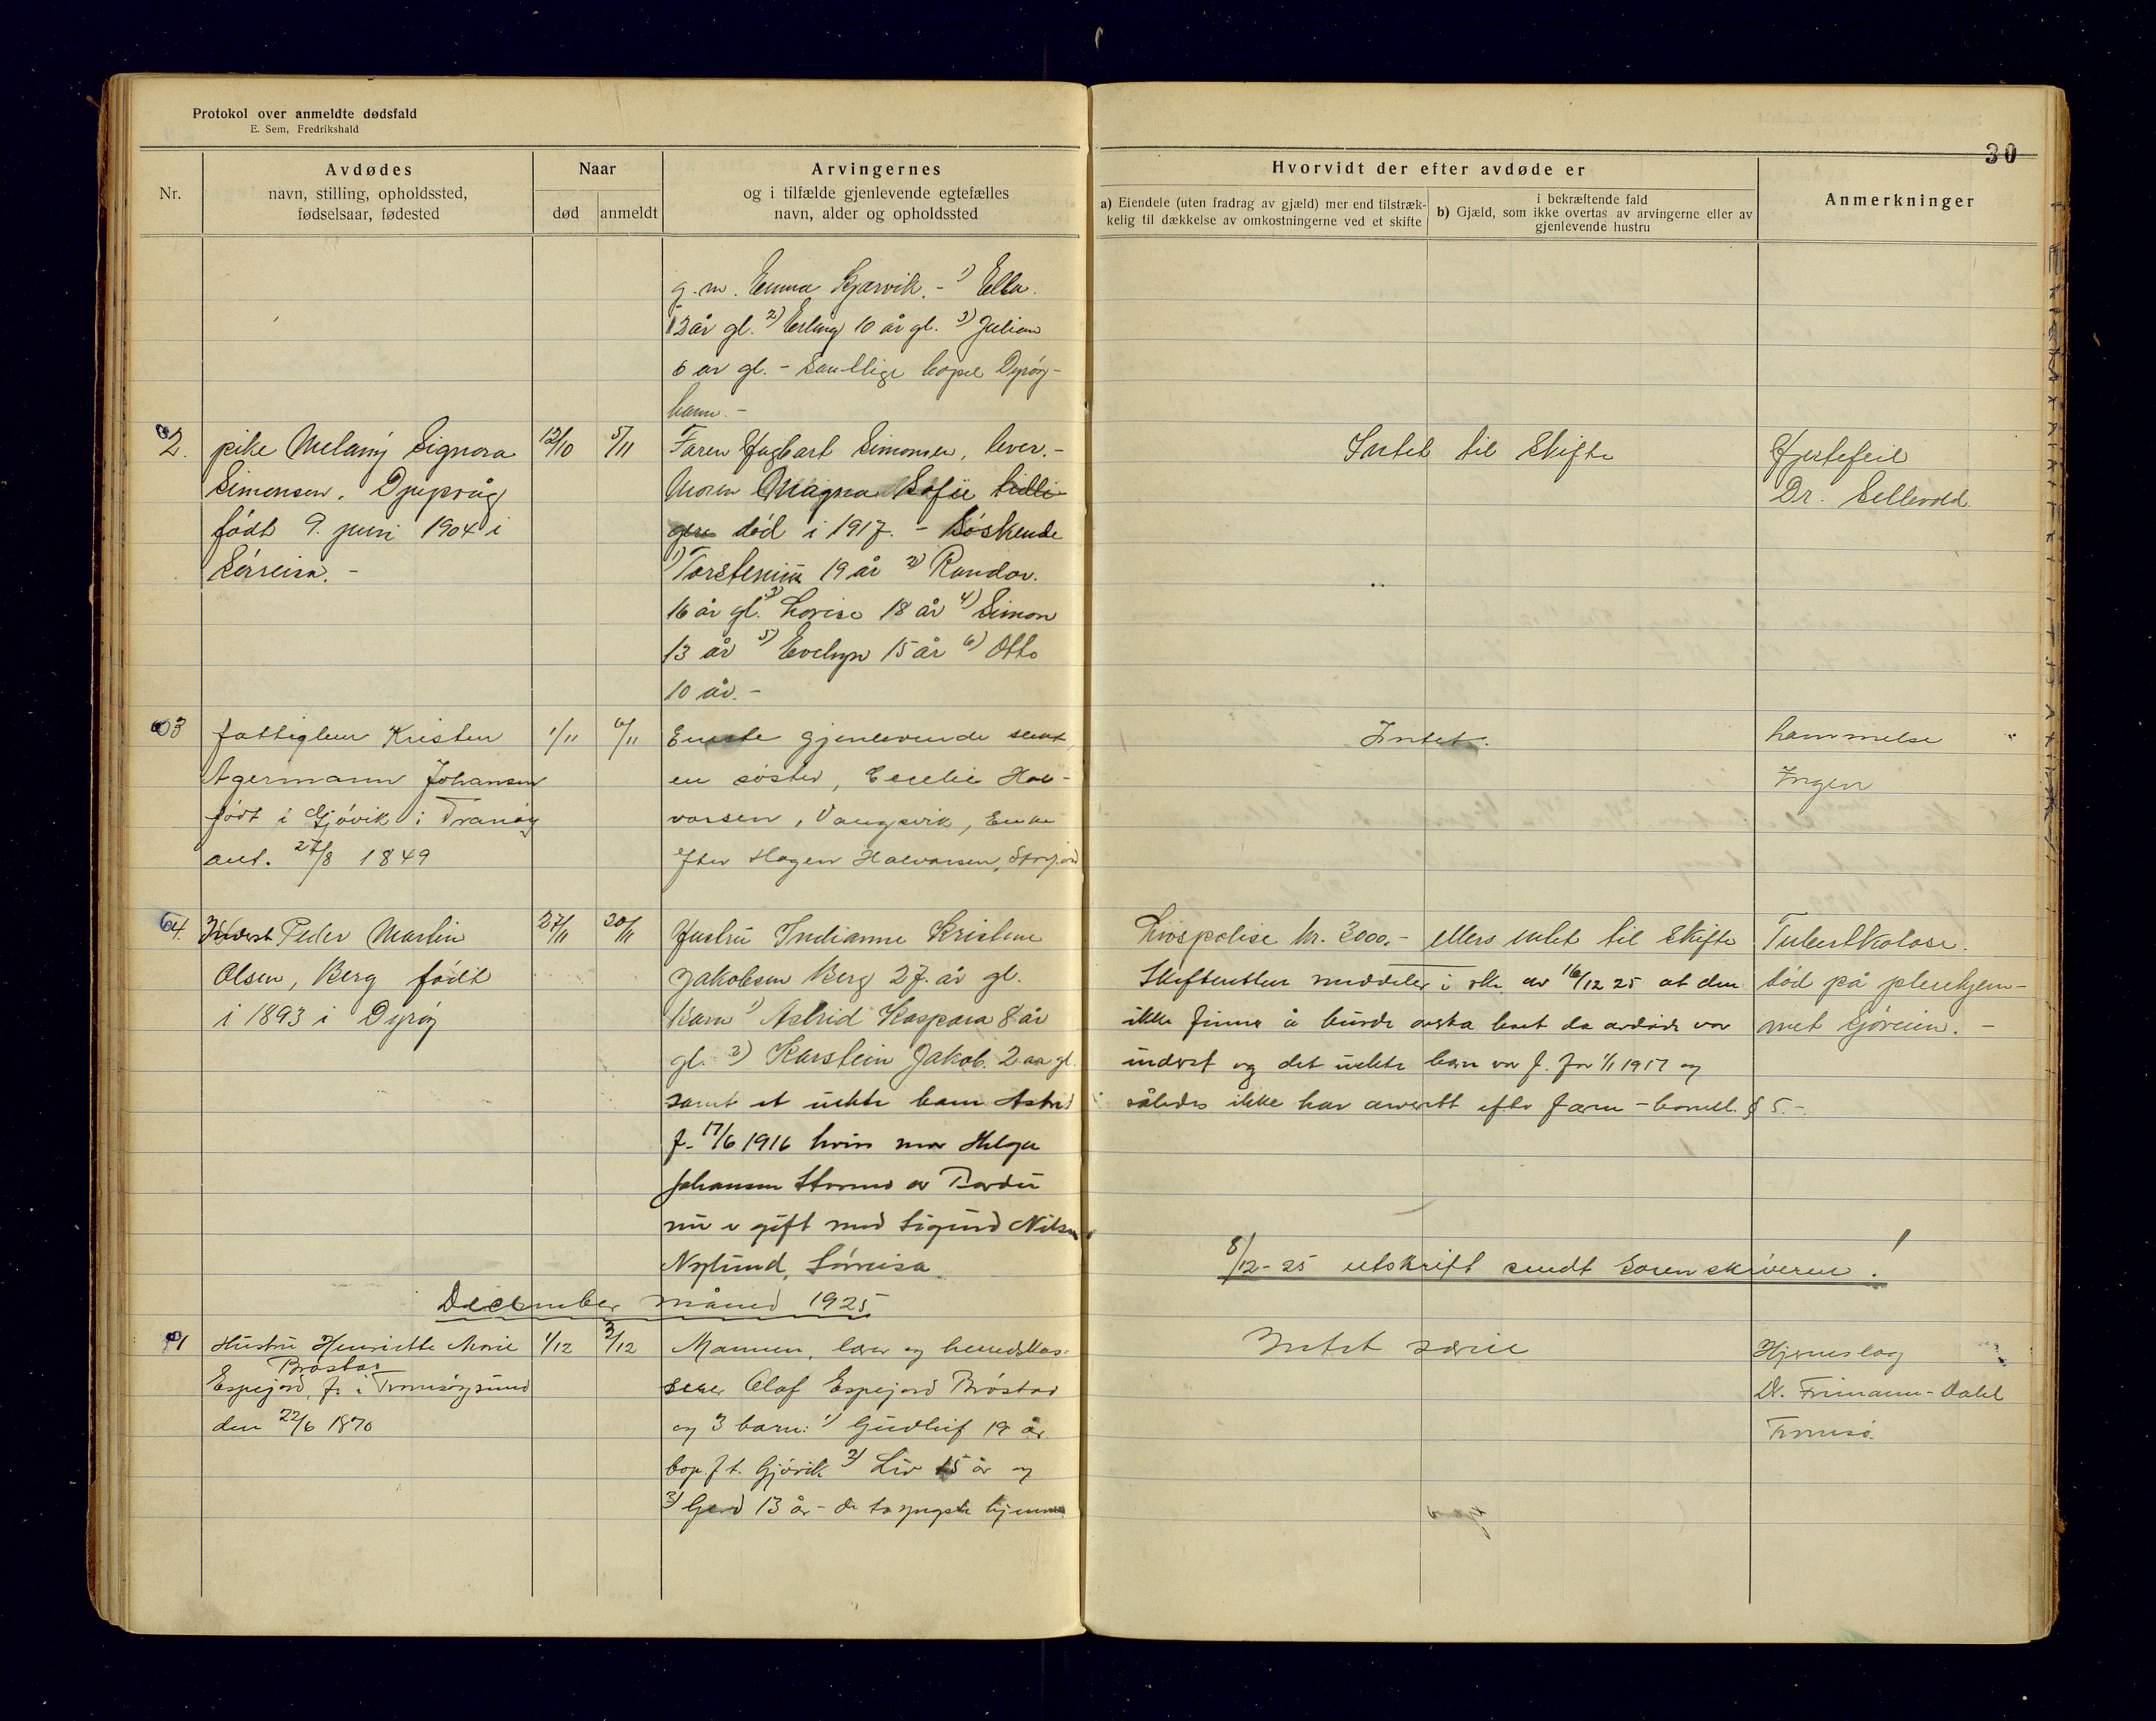 Protokol over anmeldte dødsfald
E. Sem, Fredrikshald
30
Nr.
Avdødes
navn, stilling, opholdssted,
fødselsaar, fødested
Naar
død
anmeldt
Arvingernes
og i tilfælde gjenlevende egtefælles
navn, alder og opholdssted
Hvorvidt der efter avdøde er
a) Eiendele (uten fradrag av gjæld) mer end tilstræk-
kelig til dækkelse av omkostningerne ved et skifte
i bekræftende fald
b) Gjæld, som ikke overtas av arvingerne eller av
gjenlevende hustru
Anmerkninger
g. m. Emma Kjærvik. - 1) Ella
12 år gl. 2) Erling 10 år gl. 3) Julian
6 år gl. - Samtlige bopæl Dyrøy-
havn. -
2. pike Melany Signora
Simonsen, Djupvåg
født 9. juni 1904 i
Sørreisa. -
12/10 5/11
Faren Ingbart Simonsen, lever. -
Moren Magna Sofie tidli-
gere død i 1917. - Søskende
1) Torstenius 19 år 2) Randor
16 år gl. 3) Lovise 18 år 4) Simon
13 år 5) Evelyn 15 år 6) Otto
10 år. -
Intet til Skifte
Hjertefeil
Dr. Sellevold.
3 fattiglem Kristen
Agermann Johansen
født i Gjøvik i Tranøy
ant. 27/8 1849
1/11 6/11
Eneste gjenlevende slekt,
en søster, Cecelie Hal-
vorsen, Vangsvik, Enke
efter Hagen Halvorsen,
Intet.
Lammelse
Ingen
4. Inderst Peder Martin
Olsen, Berg født
i 1893 i Dyrøy
27/11 30/11
Hustru Indianne Kristine
Jakobsen Berg 27. år gl.
Barn 1) Astrid Kaspara 8 år
gl. 2) Karstein Jakob. 2 aa gl.
samt et uekte barn Astrid
f. 17/6 1916 hvis mor Helga
Johansen Stormo av Bardu
nu er gift med Sigurd Nilsen
Nylund, Sørreisa
Livspolise kr. 3000.- ellers intet til Skifte
Skifteretten meddeler i skr. av 16/12 25 at den
ikke finner å burde overta boet da avdøde var
inderst og det uekte barn var f. før 1/1 1917 og
således ikke har arverett efter faren - barnell. § 5. -
Tuberkolose.
død på pleiehjem-
met Gjøreien. -
8/12-25 utskrift sendt Sorenskriveren!
December måned 1925
1 Hustru Henriette Marie
Brøstad
Espejord, f. i Tromsøysund
den 22/6 1870
1/12 3/12
Mannen, lærer og herredskas-
serer Olaf Espejord Brøstad
og 3 barn: 1) Gudleif 19 år
bop. f t. Gjøvik 2) Liv 15 år og
3) Gerd 13 år - de to yngste hjemme
Intet særeie
Hjerneslag
Dr. Frimann-Dahl
Tromsø.